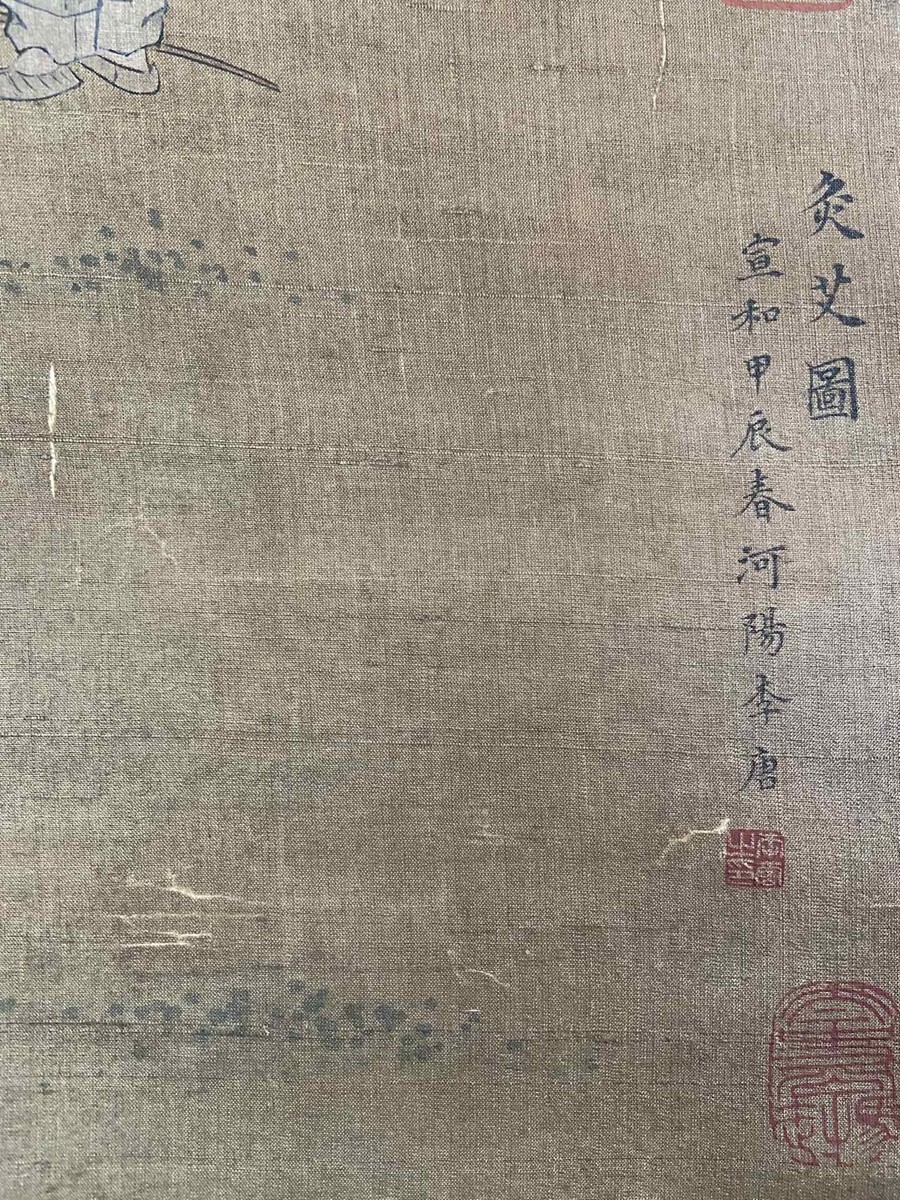 灸艾圖
宣和甲辰春河陽李唐